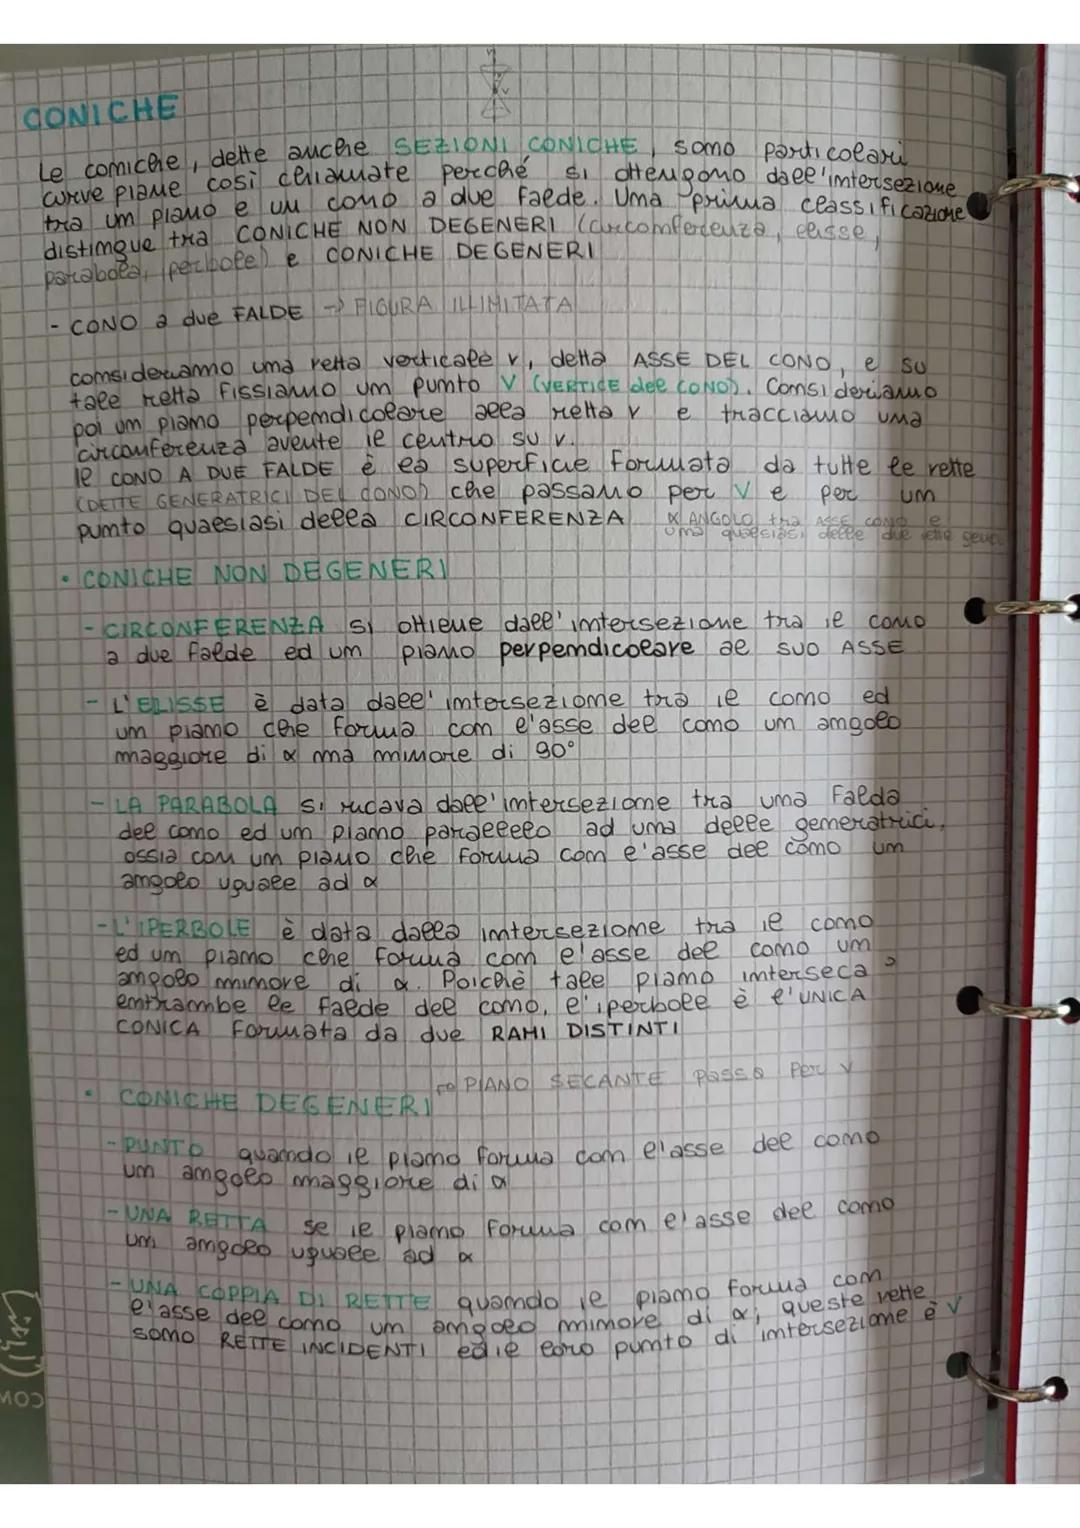 CONICHE
Le coniche, dette anche SEZIONI CONICHE, sono particolari
curve piane così chiamate perché si ottengono dall'intersezione
tra un piano e un cono a due falde. Una prima classificazione
distingue tra CONICHE NON DEGENERI (circonferenza, elisse,
parabola, iperbole) e CONICHE DEGENERI
- CONO a due FALDE → FIGURA ILLIMITATA
consideriamo una retta verticale r, detta ASSE DEL CONO, e su
tale retta fissiamo un punto V (VERTICE del CONO). Consideriamo
poi un piano perpendicolare alla retta r e tracciamo una
circonferenza avente il centro su r.
Il CONO A DUE FALDE è la superficie formata da tutte le rette
(DETTE GENERATRICI DEL CONO) che passano per V e per un
punto qualsiasi della CIRCONFERENZA
α ANGOLO tra ASSE cono e
una qualsiasi delle due rette
• CONICHE NON DEGENERI
- CIRCONFERENZA si ottiene dall'intersezione tra il cono
a due falde ed un piano perpendicolare al suo ASSE
- L'ELISSE è data dall'intersezione tra il cono ed
un piano che forma con l'asse del cono un angolo
maggiore di α ma minore di 90°
- LA PARABOLA si ricava dall'intersezione tra una falda
del cono ed un piano parallelo ad una delle generatrici,
ossia con un piano che forma con l'asse del cono un
angolo uguale ad α
- L'IPERBOLE è data dalla intersezione tra il cono
ed un piano che forma con l'asse del cono un
angolo minore di α. Poichè tale piano interseca
entrambe le falde del cono, l'iperbole è l'UNICA
CONICA formata da due RAMI DISTINTI
→ PIANO SECANTE passa per V
• CONICHE DEGENERI
- PUNTO quando il piano forma con l'asse del cono
un angolo maggiore di α
- UNA RETTA se il piano forma con l'asse del cono
un angolo uguale ad α
- UNA COPPIA DI RETTE quando il piano forma con
l'asse del cono un angolo minore di α; queste rette
sono RETTE INCIDENTI ed il loro punto di intersezione è V